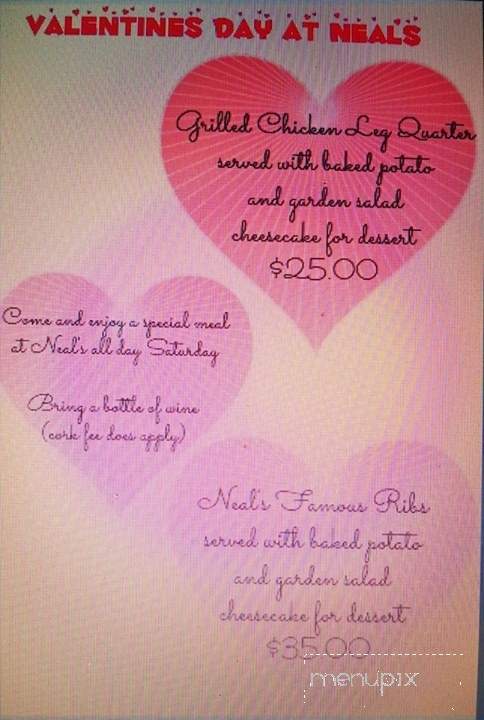 VALENTINES DAY AT NEALS
Grilled Chicken Leg Quarter
served with baked potato
and garden salad
cheesecake for dessert
$25.00
Come and enjoy a special meal
at Neal's all day Saturday
Bring a bottle of wine
(cork fee does apply)
Neal's Famous Ribs
served with baked potato
and garden salad
cheesecake for dessert
$35.00
menupix